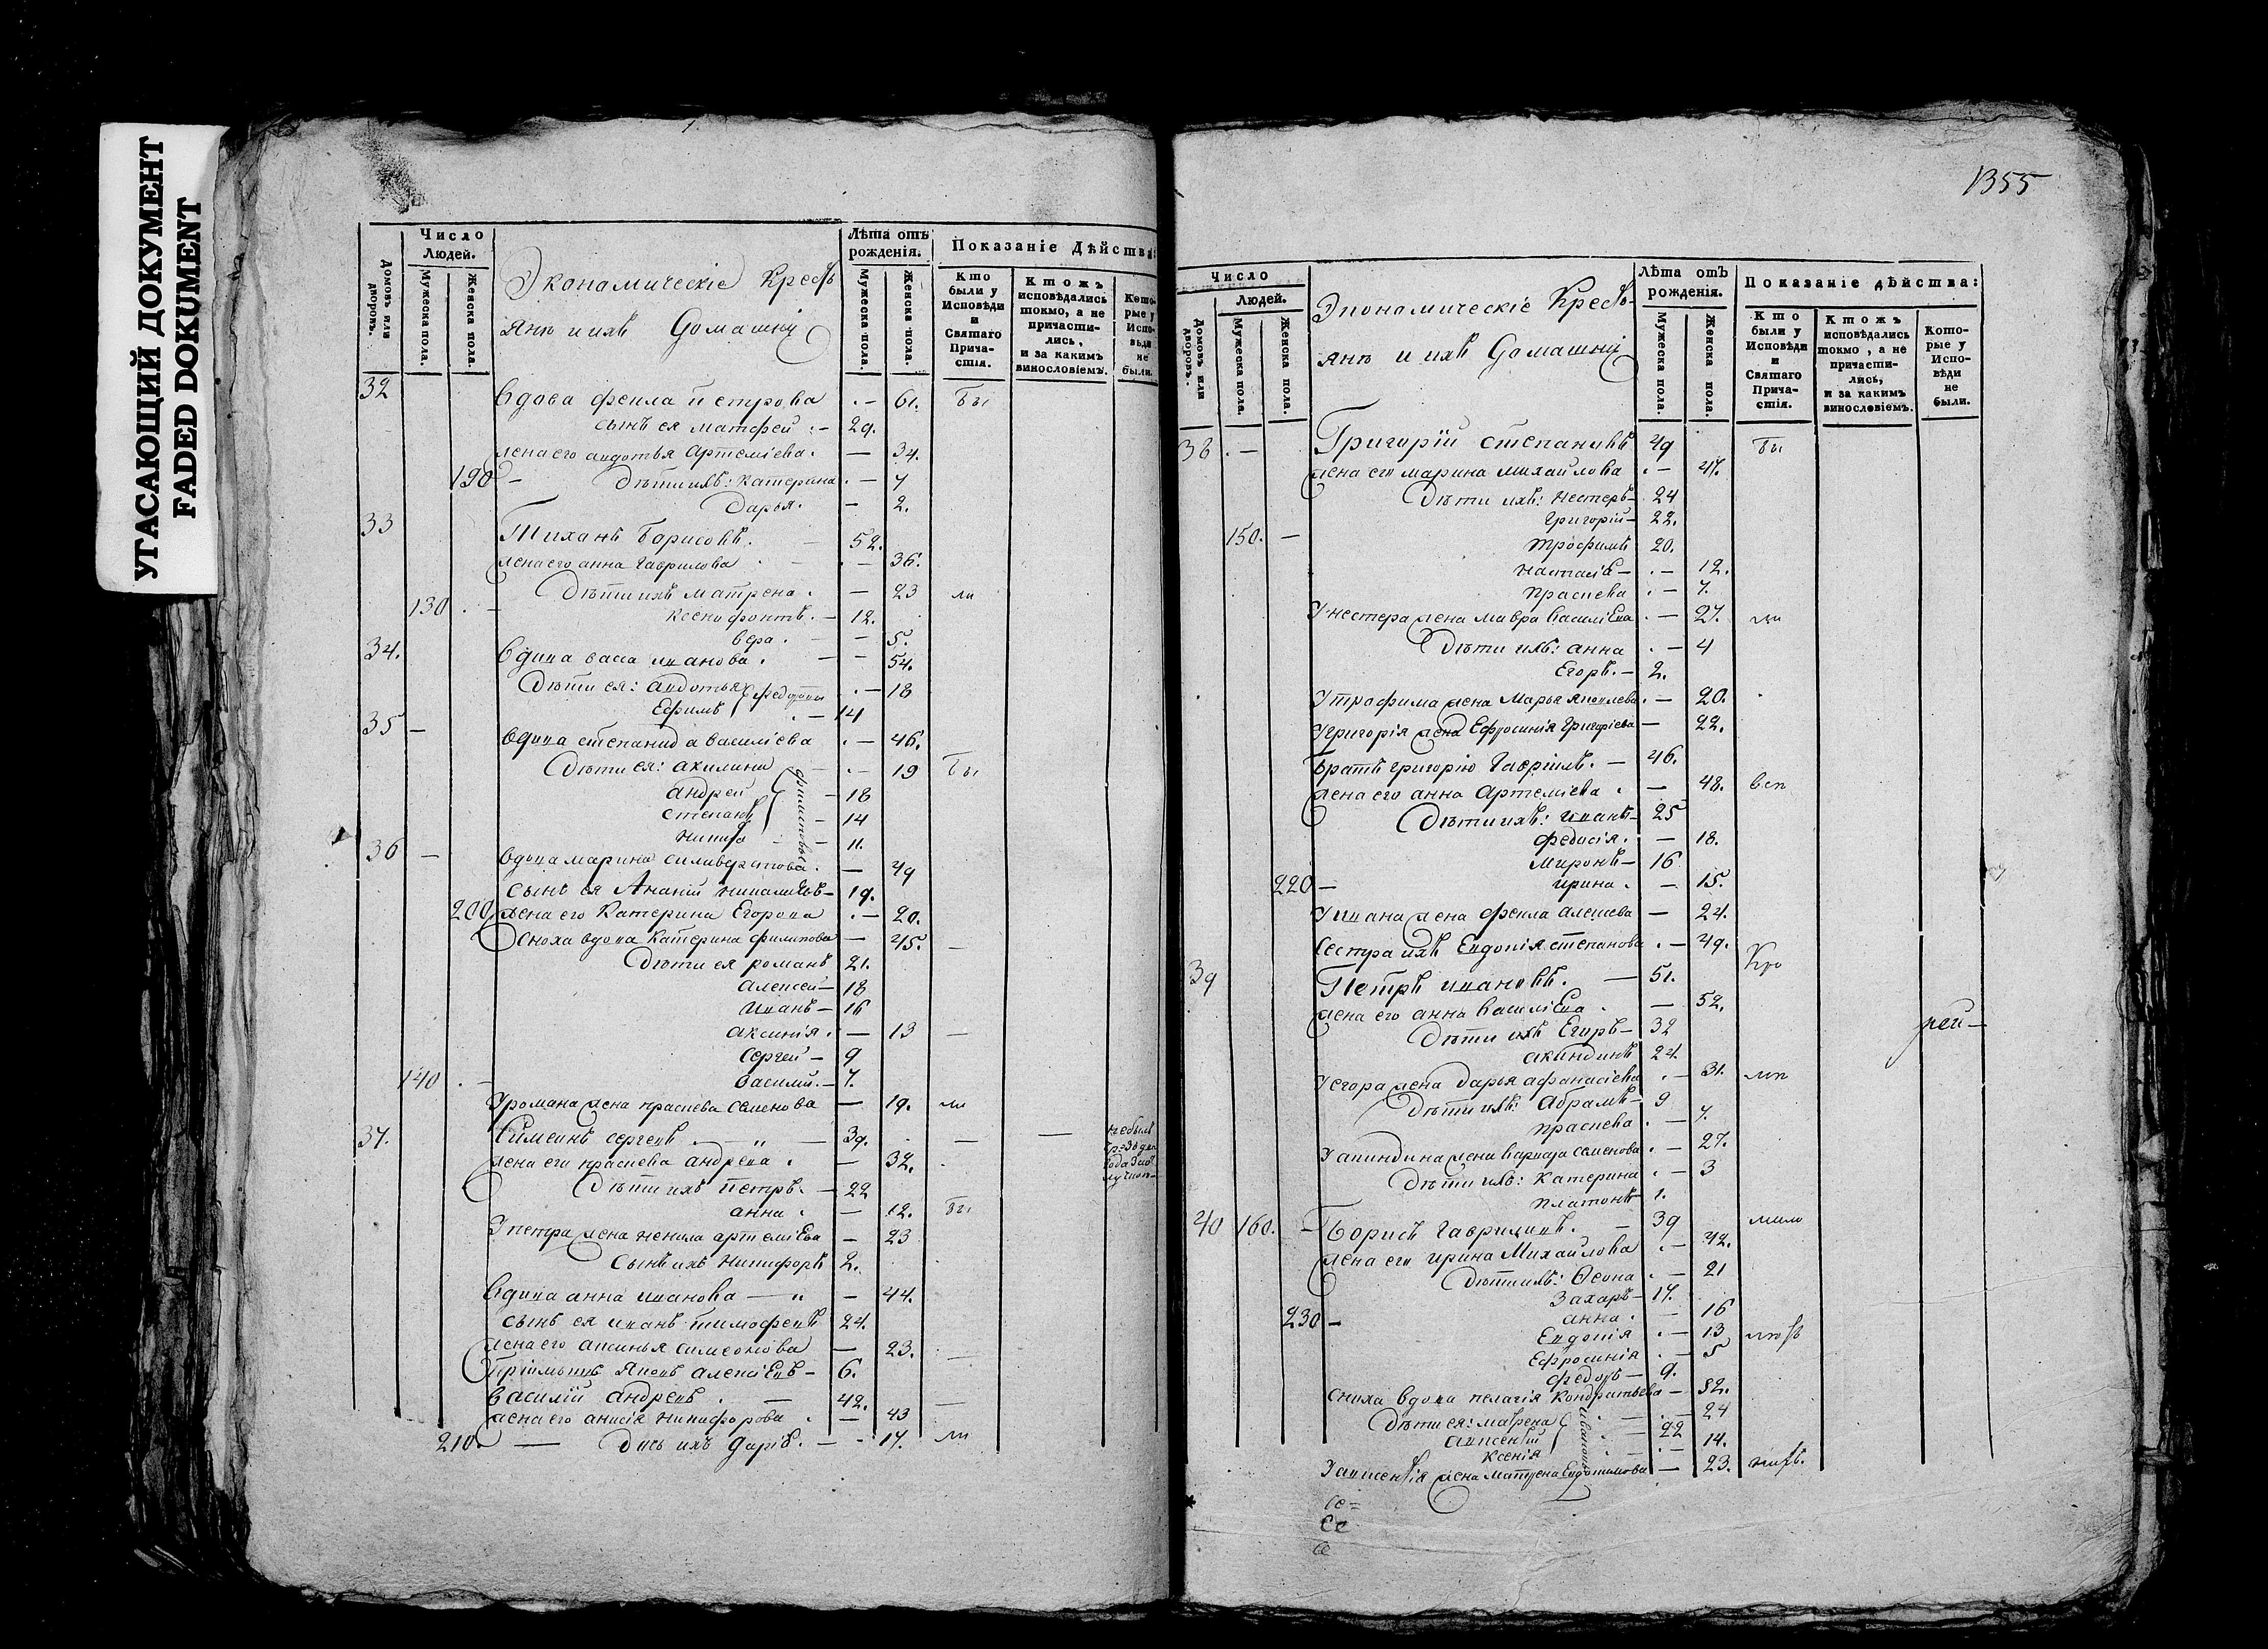 УГАСАЮЩИЙ ДОКУМЕНТ
FADED DOKUMENT
Число Людей.
Лѣта отъ рожденія.
Показаніе Дѣйства:
Домовъ или дворовъ.
Мужеска пола.
Женска пола.
Экономическіе Кресть
янѣ и ихъ Домашніи
Мужеска пола.
Женска пола.
Кто были у Исповѣди и Святаго Причастія.
Ктожъ исповѣдались токмо, а не причастились, и за какимъ винословіемъ.
Которые у Исповѣди не были.
32 Вдова Фекла Петрова 61. бы
сынъ ея Матфей 29.
жена его Авдотья Артеміева 34.
190 Дѣти ихъ: Катерина 7
Дарья. 2.
33 Тиханъ Борисовъ. 52.
жена его анна Гаврилова 36.
Дѣти ихъ матрена 23 ли
130 Ксенофонтъ. 12.
вера. 5.
34. Вдова васса иванова. 54.
Дѣти ея: авдотья 18
Ефимъ 14
35 вдова степанида василіева 46.
Дѣти ея: акилина 19 бы
андрей 18
степанъ 14
11.
36 вдова марина селиверстова. 49
сынъ ея Ананій 19.
200 жена его Катерина Егорова 20.
Сноха вдова Катерина филипова 45.
Дѣти ея романъ 21.
алексей 18
иванъ 16
аксинія. 13
сергей 9
140 василий. 7.
У романа жена праскева семенова 19. ли
37. Симеонъ сергеевъ 39.
жена его праскева андреева 32.
Дѣти ихъ петръ. 22
анна 12. бы
У петра жена ненила артеміева 23
Сынъ ихъ никифоръ 2.
Вдова анна иванова 44.
сынъ ея иванъ тимофеевъ 24.
жена его аксинья симеонова 23.
Яковъ алексіевъ 6.
василій андреевъ 42.
жена его анисія никифорова 43
210. Дочь ихъ Дарія. 17. ли
1355
Число Людей.
Лѣта отъ рожденія.
Показаніе дѣйства:
Домовъ или дворовъ.
Мужеска пола.
Женска пола.
Экономическіе Кресть-
янѣ и ихъ Домашніи
Мужеска пола.
Женска пола.
Кто были у Исповѣди и Святаго Причастія.
Ктожъ исповѣдались токмо, а не причастились, и за какимъ винословіемъ.
Которые у Исповѣди не были.
38 Григорій степановъ 49 бы
жена его марина михайлова 47.
Дѣти ихъ: нестеръ 24
Григорій 22.
150. трофимъ 20.
настасія 12.
праскева 7.
У нестера жена мавра василіева 27. ли
Дѣти ихъ: анна 4
Егоръ. 2.
У трофима жена Марья яковлева 20.
У григорія жена Ефросинія Григоріева 22.
Братъ григорію Гавріилъ. 46.
жена его анна Артеміева 48. всп
Дѣти ихъ: иванъ 25
федосія. 18.
миронъ 16
220 ирина. 15.
У ивана жена фекла алексеева 24.
Сестра ихъ Евдокія степанова 49.
39 Петръ ивановъ. 51. Кро
жена его анна василіева 52.
Дѣти ихъ Егоръ 32
акиндинъ 24.
У егора жена дарья афанасіева 31.
Дѣти ихъ: Абрамъ 9
праскева 7.
У акиндина жена варвара семенова 27.
Дѣти ихъ: Катерина 3
платонъ 1.
40 160. Борисъ Гавриловъ. 39
жена его ирина Михайлова 42.
Дѣти ихъ: Ѳеона 21
Захаръ 17.
230 анна. 16
Евдокія 13
Ефросинія 5
федоръ 9.
сноха вдова пелагія Кондратьева 52.
Дѣти ея: матрена 24
22
ксенія 14.
23.
се=
Се
се